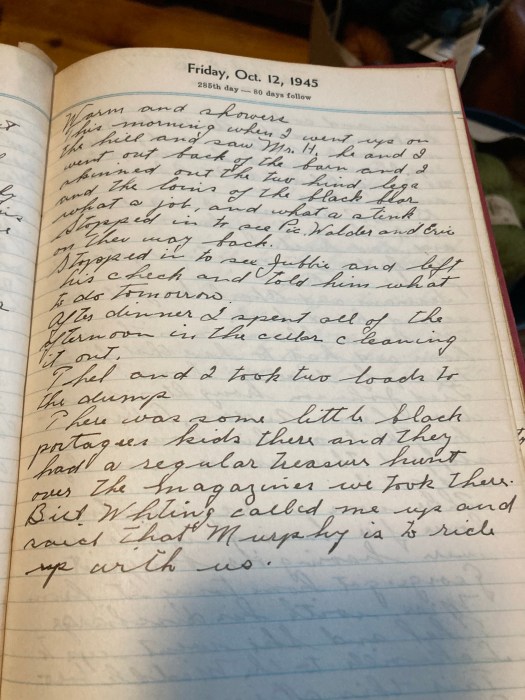 Friday, Oct. 12, 1945
285th day — 80 days follow
Warm and showers
This morning when I went up on
the hill and saw Mr. H, he and I
went out back of the barn and I
skinned out the two hind legs
and the loins of the black bear
what a job, and what a stink
Stopped in to see Pic. Walder and Eric
on the way back.
Stopped in to see Jubbie and left
his check and told him what
to do tomorrow.
After dinner I spent all of the
afternoon in the cellar cleaning
it out.
Phel and I took two loads to
the dump
There was some little black
portagees kids there and they
had a regular treasure hunt
over the magazines we took there.
Bill Whiting called me up and
said that Murphy is to ride
up with us.